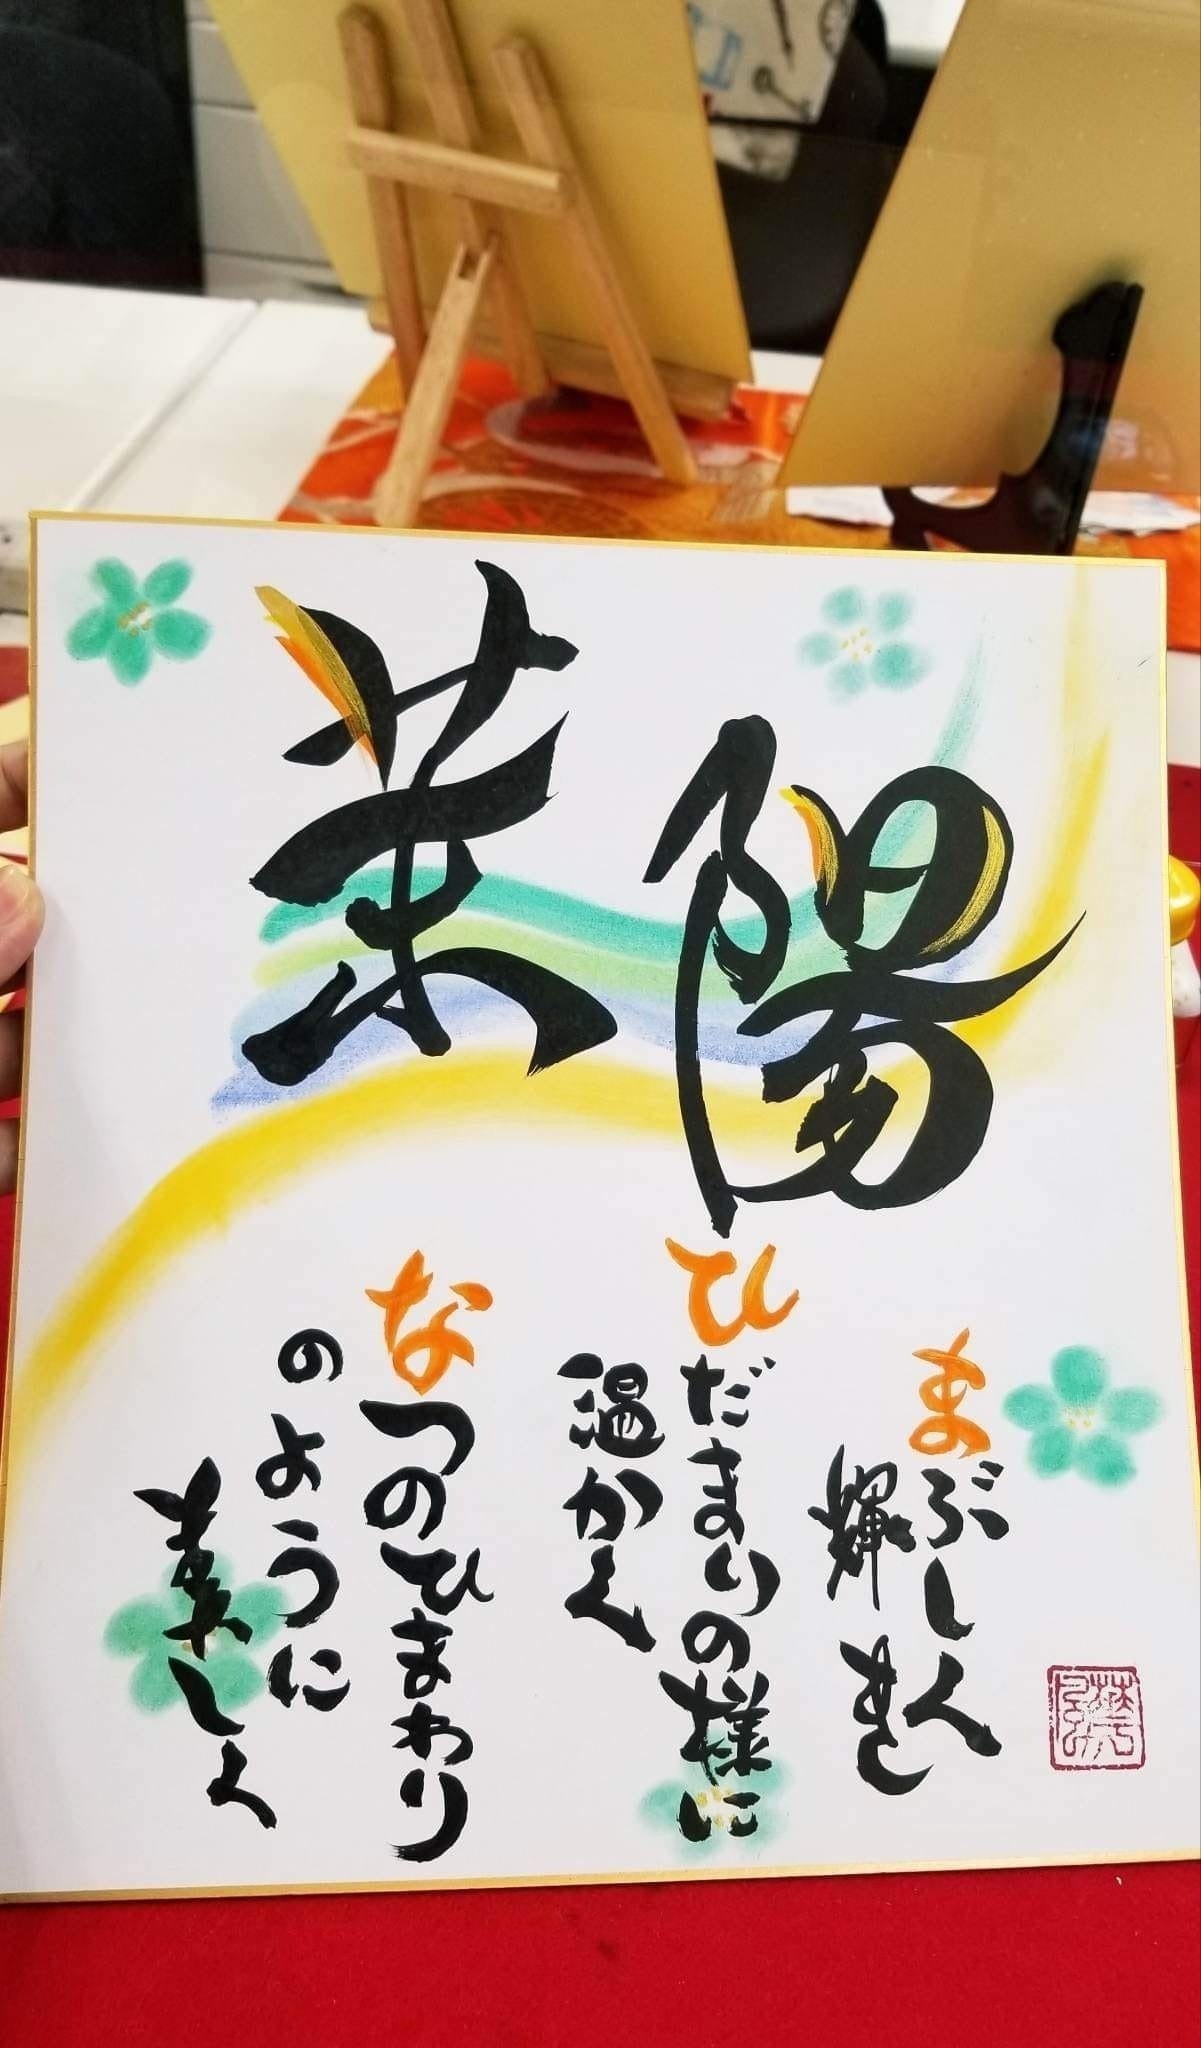 陽菜
まぶしく
輝き
ひだまりの様に
温かく
なつのひまわり
のように
美しく